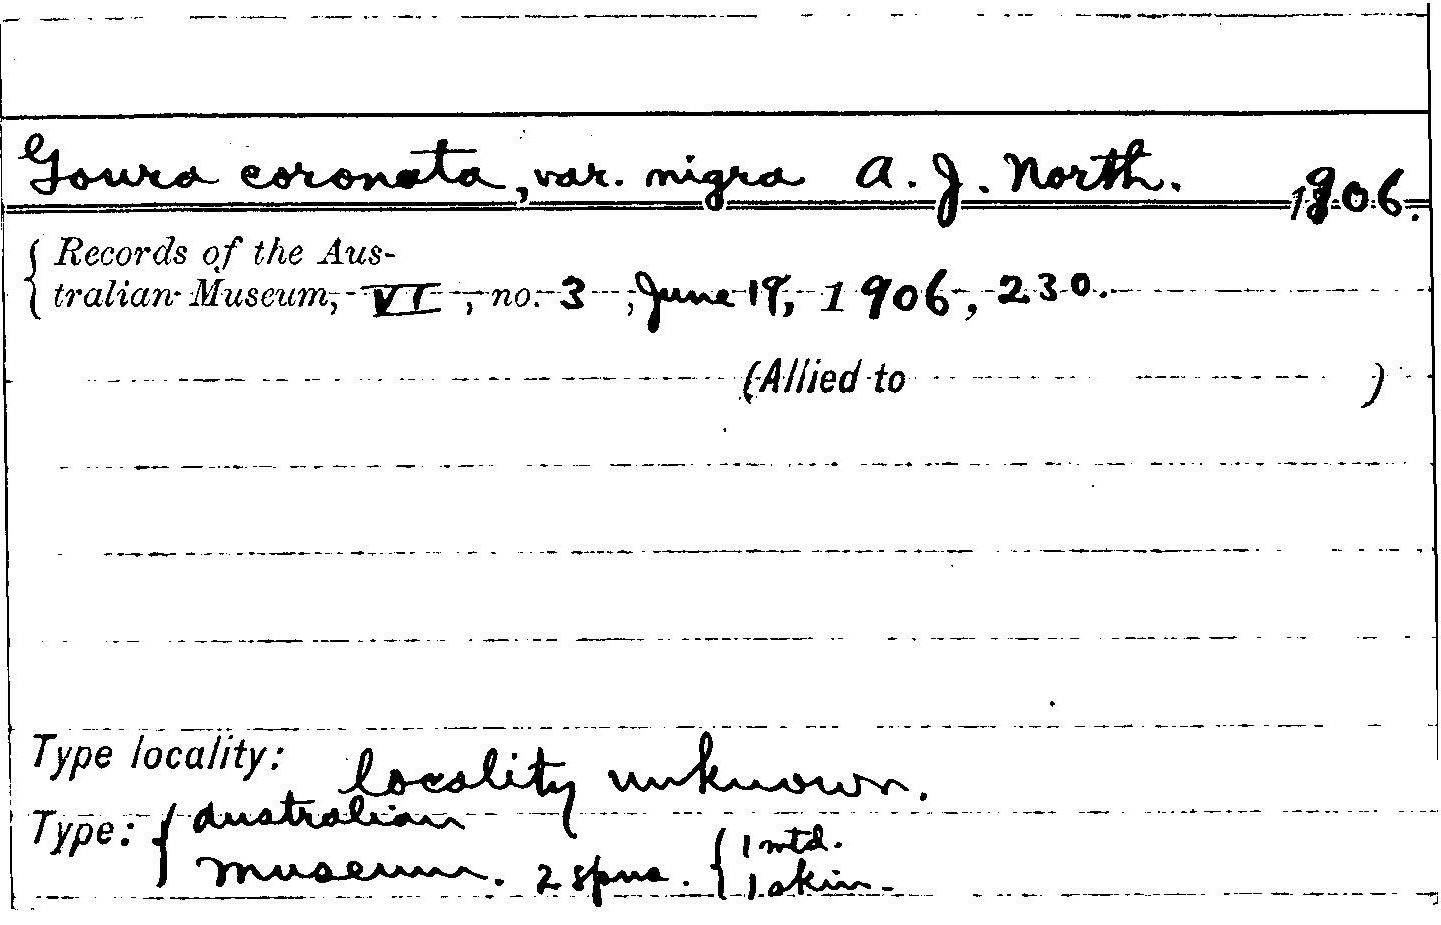 Goura coronata, var. nigra A. J. North. 1906.
{ Records of the Aus-
tralian Museum, VI, no. 3, June 19, 1906, 230.
(Allied to )
Type locality: locality unknown.
Type: { Australian
Museum. 2 spns. { 1 mtd.
1 skin.